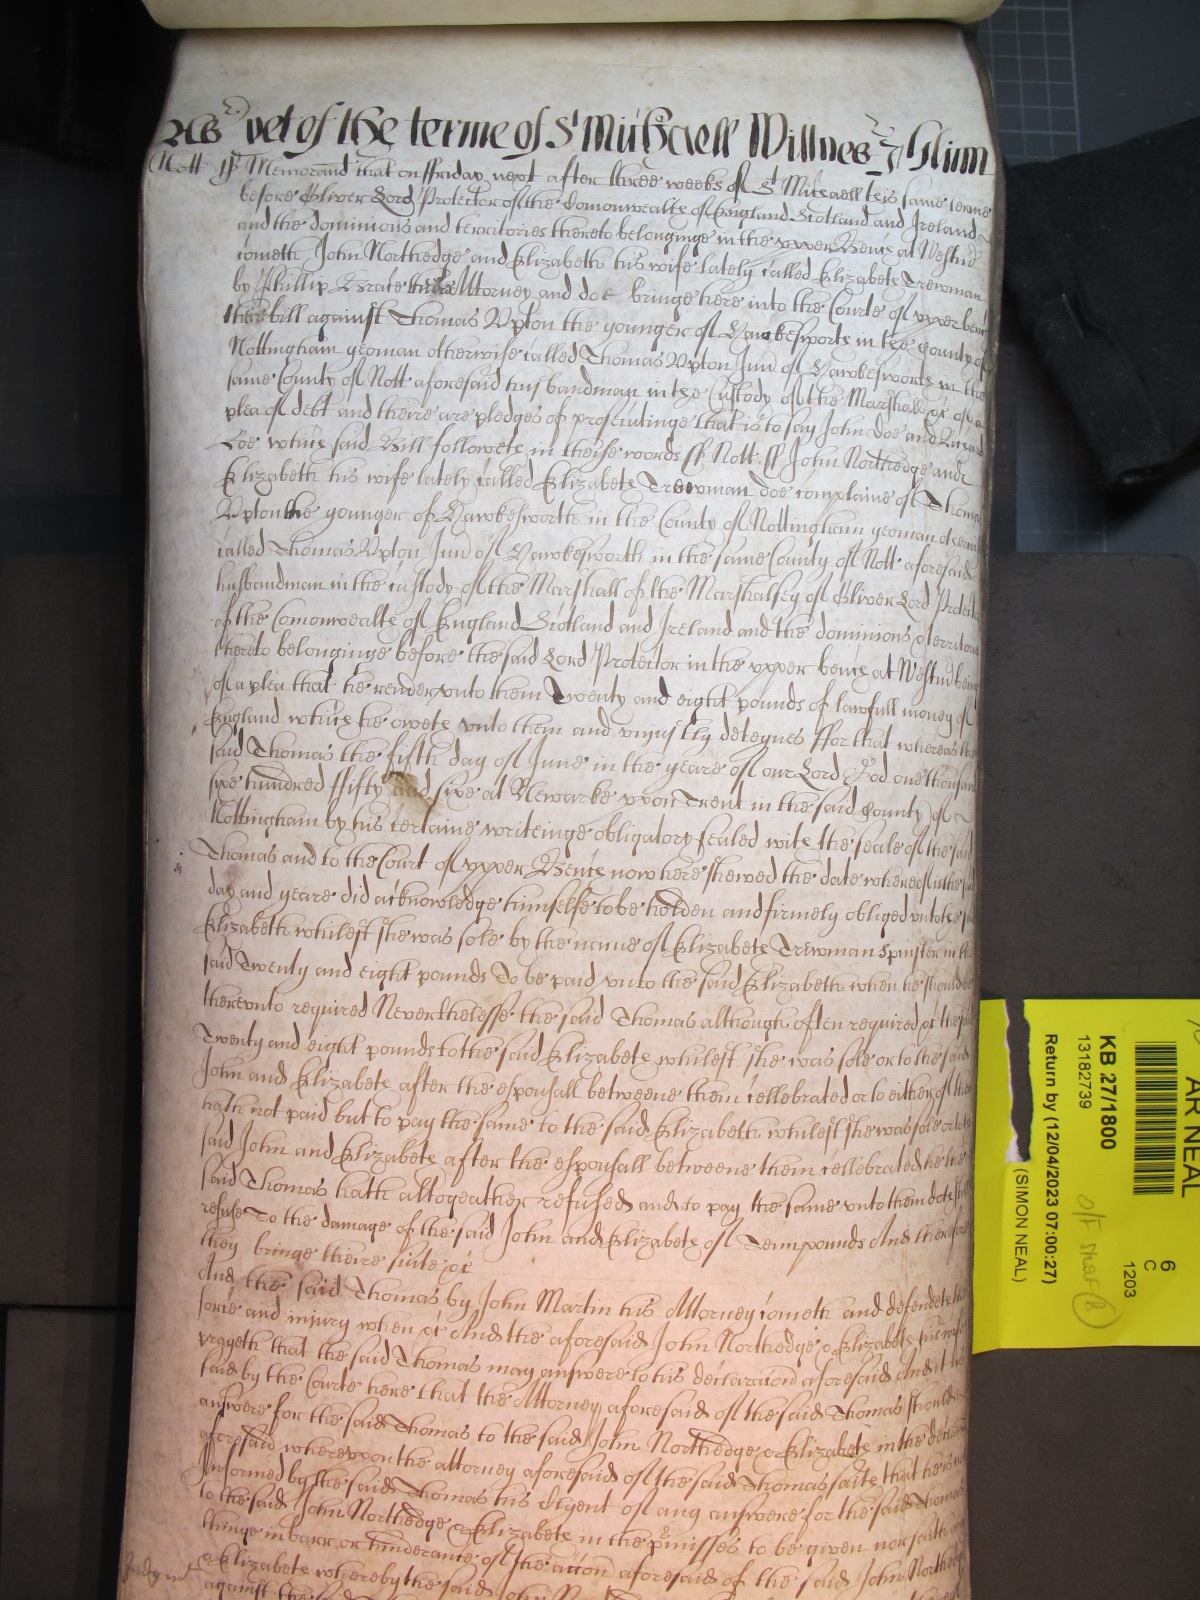 As yet of the terme of St Michaell Willnes & Hlinn
Nott ss Memorand that on ffriday next after three weeks of St Michaell this same terme
before Oliver Lord Protector of the Comonwealth of England Scotland and Ireland
and the dominions and territories thereto belonginge in the upper Bence at Westm
cometh John Northedge and Elizabeth his wife lately called Elizabeth Trewman
by Phillip Grate their Attorney and doe bringe here into the Courte of upper bence
their bill against Thomas Upton the younger of Hawkesworth in the County of
Nottingham yeoman otherwise called Thomas Upton Jun of Hawkesworth in the
same County of Nott aforesaid husbandman in the Custody of the Marshall &c of a
plea of debt and theire are pledges of prosecutinge that is to say John Doe and Ricard
Roe which said Bill followeth in theise words ss Nott ss John Northedge and
Elizabeth his wife lately called Elizabeth Trewman doe complaine of Thomas
Upton the younger of Hawkesworth in the County of Nottingham yeoman otherwise
called Thomas Upton Jun of Hawkesworth in the same County of Nott aforesaid
husbandman in the custody of the Marshall of the Marshalsey of Oliver Lord Protector
of the Comonwealth of England Scotland and Ireland and the dominions & territories
thereto belonginge before the said Lord Protector in the upper bence at Westm beinge
of a plea that he render unto them Twenty and eight pounds of lawfull money of
England which he oweth unto them and unjustly deteynes ffor that whereas the
said Thomas the fifth day of June in the yeare of our Lord God one thousand
six hundred ffifty and sixe at Newarke upon Trent in the said County of
Nottingham by his certaine writeinge obligatory sealed with the seale of the said
Thomas and to the Court of upper Bence now here shewed the date whereof is the same
day and yeare did acknowledge himselfe to be holden and firmely obliged unto the said
Elizabeth whilest she was sole by the name of Elizabeth Trewman Spinster in the
said Twenty and eight pounds To be paid unto the said Elizabeth when he should be
thereunto required Neverthelesse the said Thomas although often required &c the said
Twenty and eight pounds to the said Elizabeth whilest she was sole or to the said
John and Elizabeth after the espousall betweene them cellebrated or to either of them
hath not paid but to pay the same to the said Elizabeth whilest she was sole or to the
said John and Elizabeth after the espousall betweene them cellebrated he the
said Thomas hath altogeather refused and to pay the same unto them doth still
refuse To the damage of the said John and Elizabeth of Tenn pounds And therefore
they bringe theire suite &c
And the said Thomas by John Martin his Attorney cometh and defendeth the
force and injury when &c And the aforesaid John Northedge & Elizabeth his wife
prayeth that the said Thomas may answere to his declaracon aforesaid And it is
said by the Courte here that the Attorney aforesaid of the said Thomas should
answere for the said Thomas to the said John Northedge & Elizabeth in the
aforesaid whereupon the attorney aforesaid of the said Thomas saith that he is not
Informed by the said Thomas his Clyent of any answere for the said Thomas
to the said John Northedge & Elizabeth in the pmisses to be given nor saith any
thinge in barr or hinderance of the accon aforesaid of the said John Northedge
Judgmt
& Elizabeth whereby the said John
against the said
AR NEAL
6
C
1203
KB 27/1800
13182739
Return by (12/04/2023 07:00:27)
(SIMON NEAL)